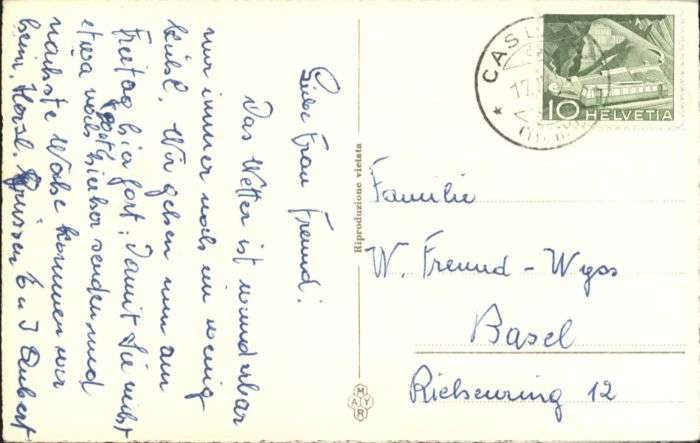 Liebe Frau Freund!
Das Wetter ist wunderbar
nur immer noch ein wenig
kühl. Wir gehen nun am
Freitag hier fort, damit Sie nicht
etwa noch Post hierher senden und
nächste Woche kommen wir
heim. Herzl. Grüssen E u J Aubert
Riproduzione vietata
MAYR
CASL
17.
10 HELVETIA
Familie
W. Freund-Wyss
Basel
Riehenring 12